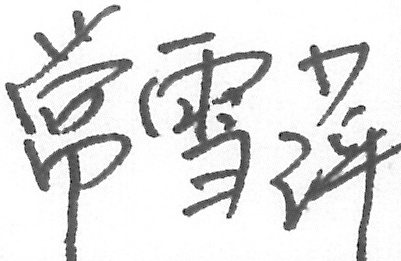 常雪萍